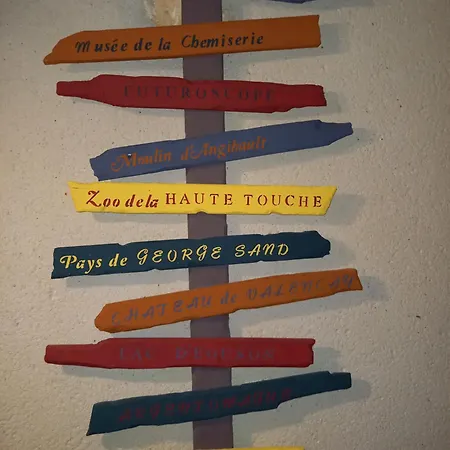 Musée de la Chemiserie
FUTUROSCOPE
Moulin d'Angibault
Zoo de la HAUTE TOUCHE
Pays de GEORGE SAND
CHATEAU de VALENCAY
LAC D'EGUZON